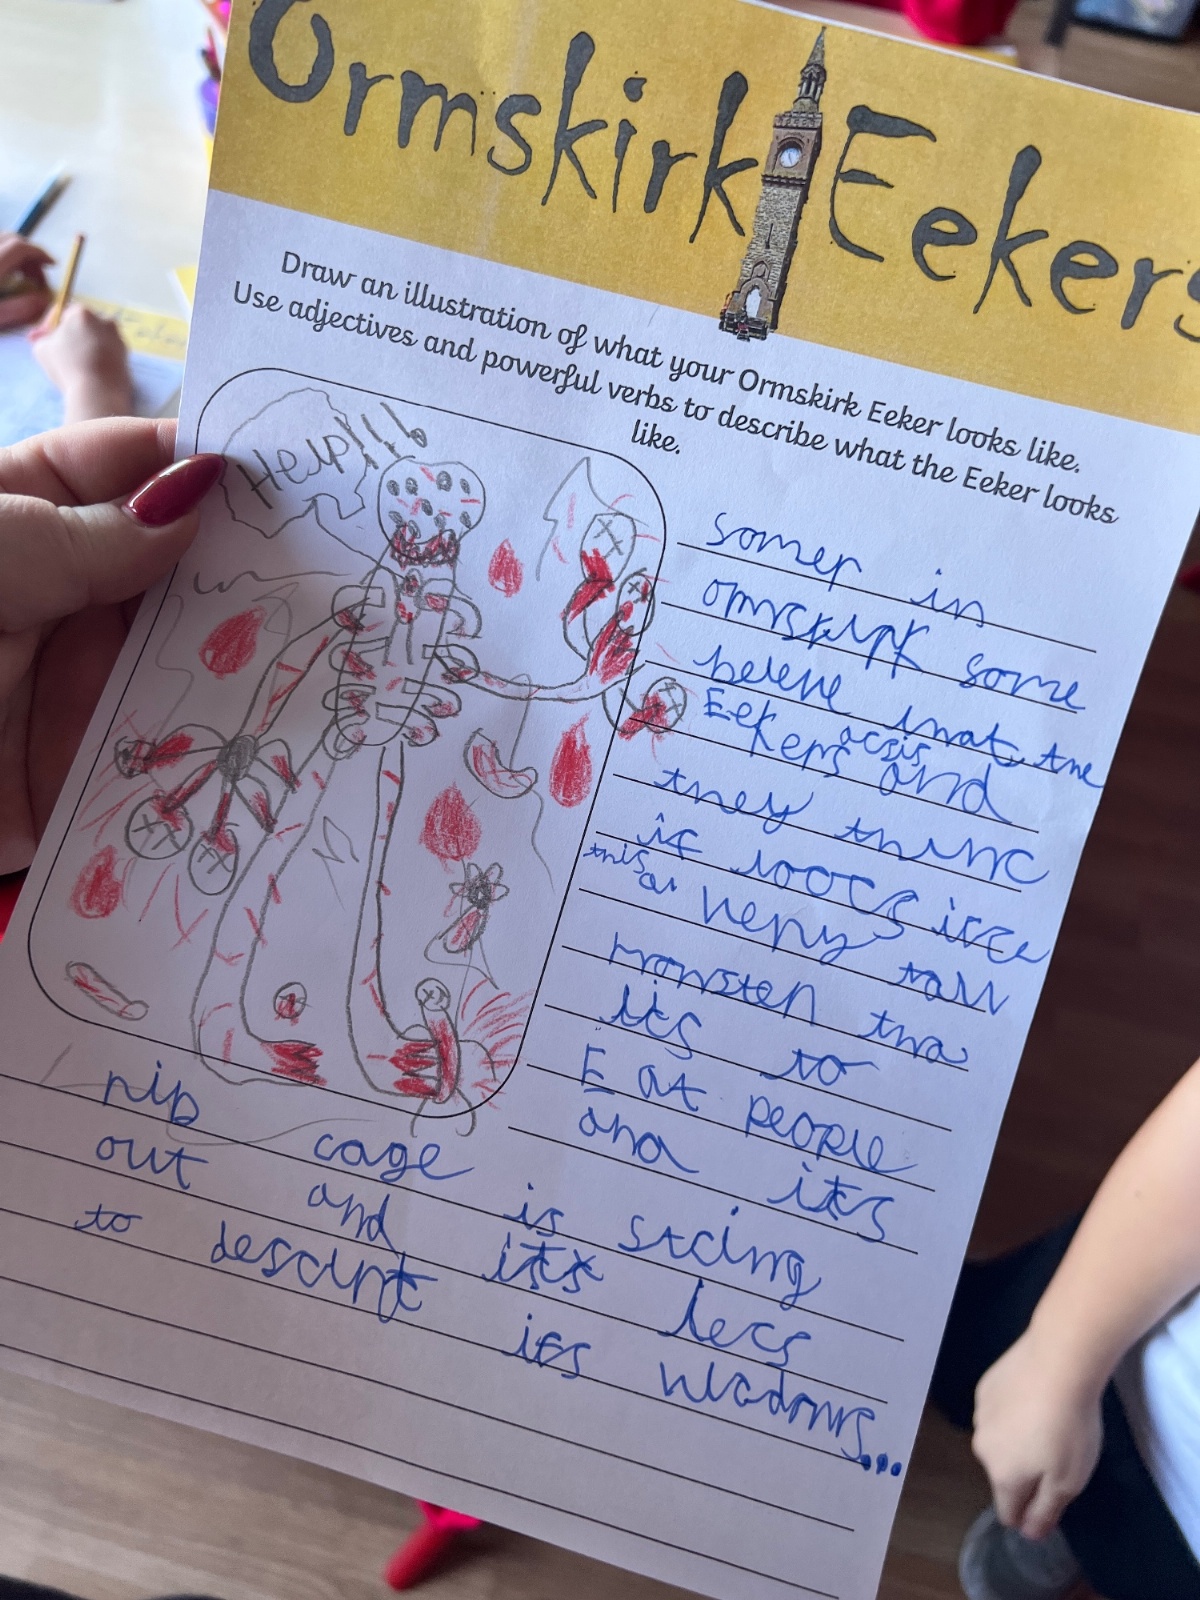 Ormskirk Eekers
Draw an illustration of what your Ormskirk Eeker looks like.
Use adjectives and powerful verbs to describe what the Eeker looks
like.
Help!!!
somer in
omrskirk some
beleve that the
Eek
kers acsis and
they thinc
if loocs icce
this a very tall
monster tha
its to
Eat people
and its
rib cage is stcing
out and its lecs
to descint its